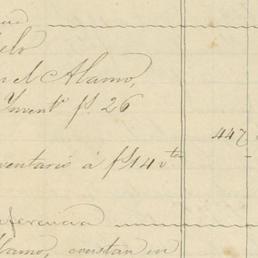 elo
n el Alamo,
Invent.º fs. 26
447
ventario á fs 14 vta
ferencia
lamo, constan en